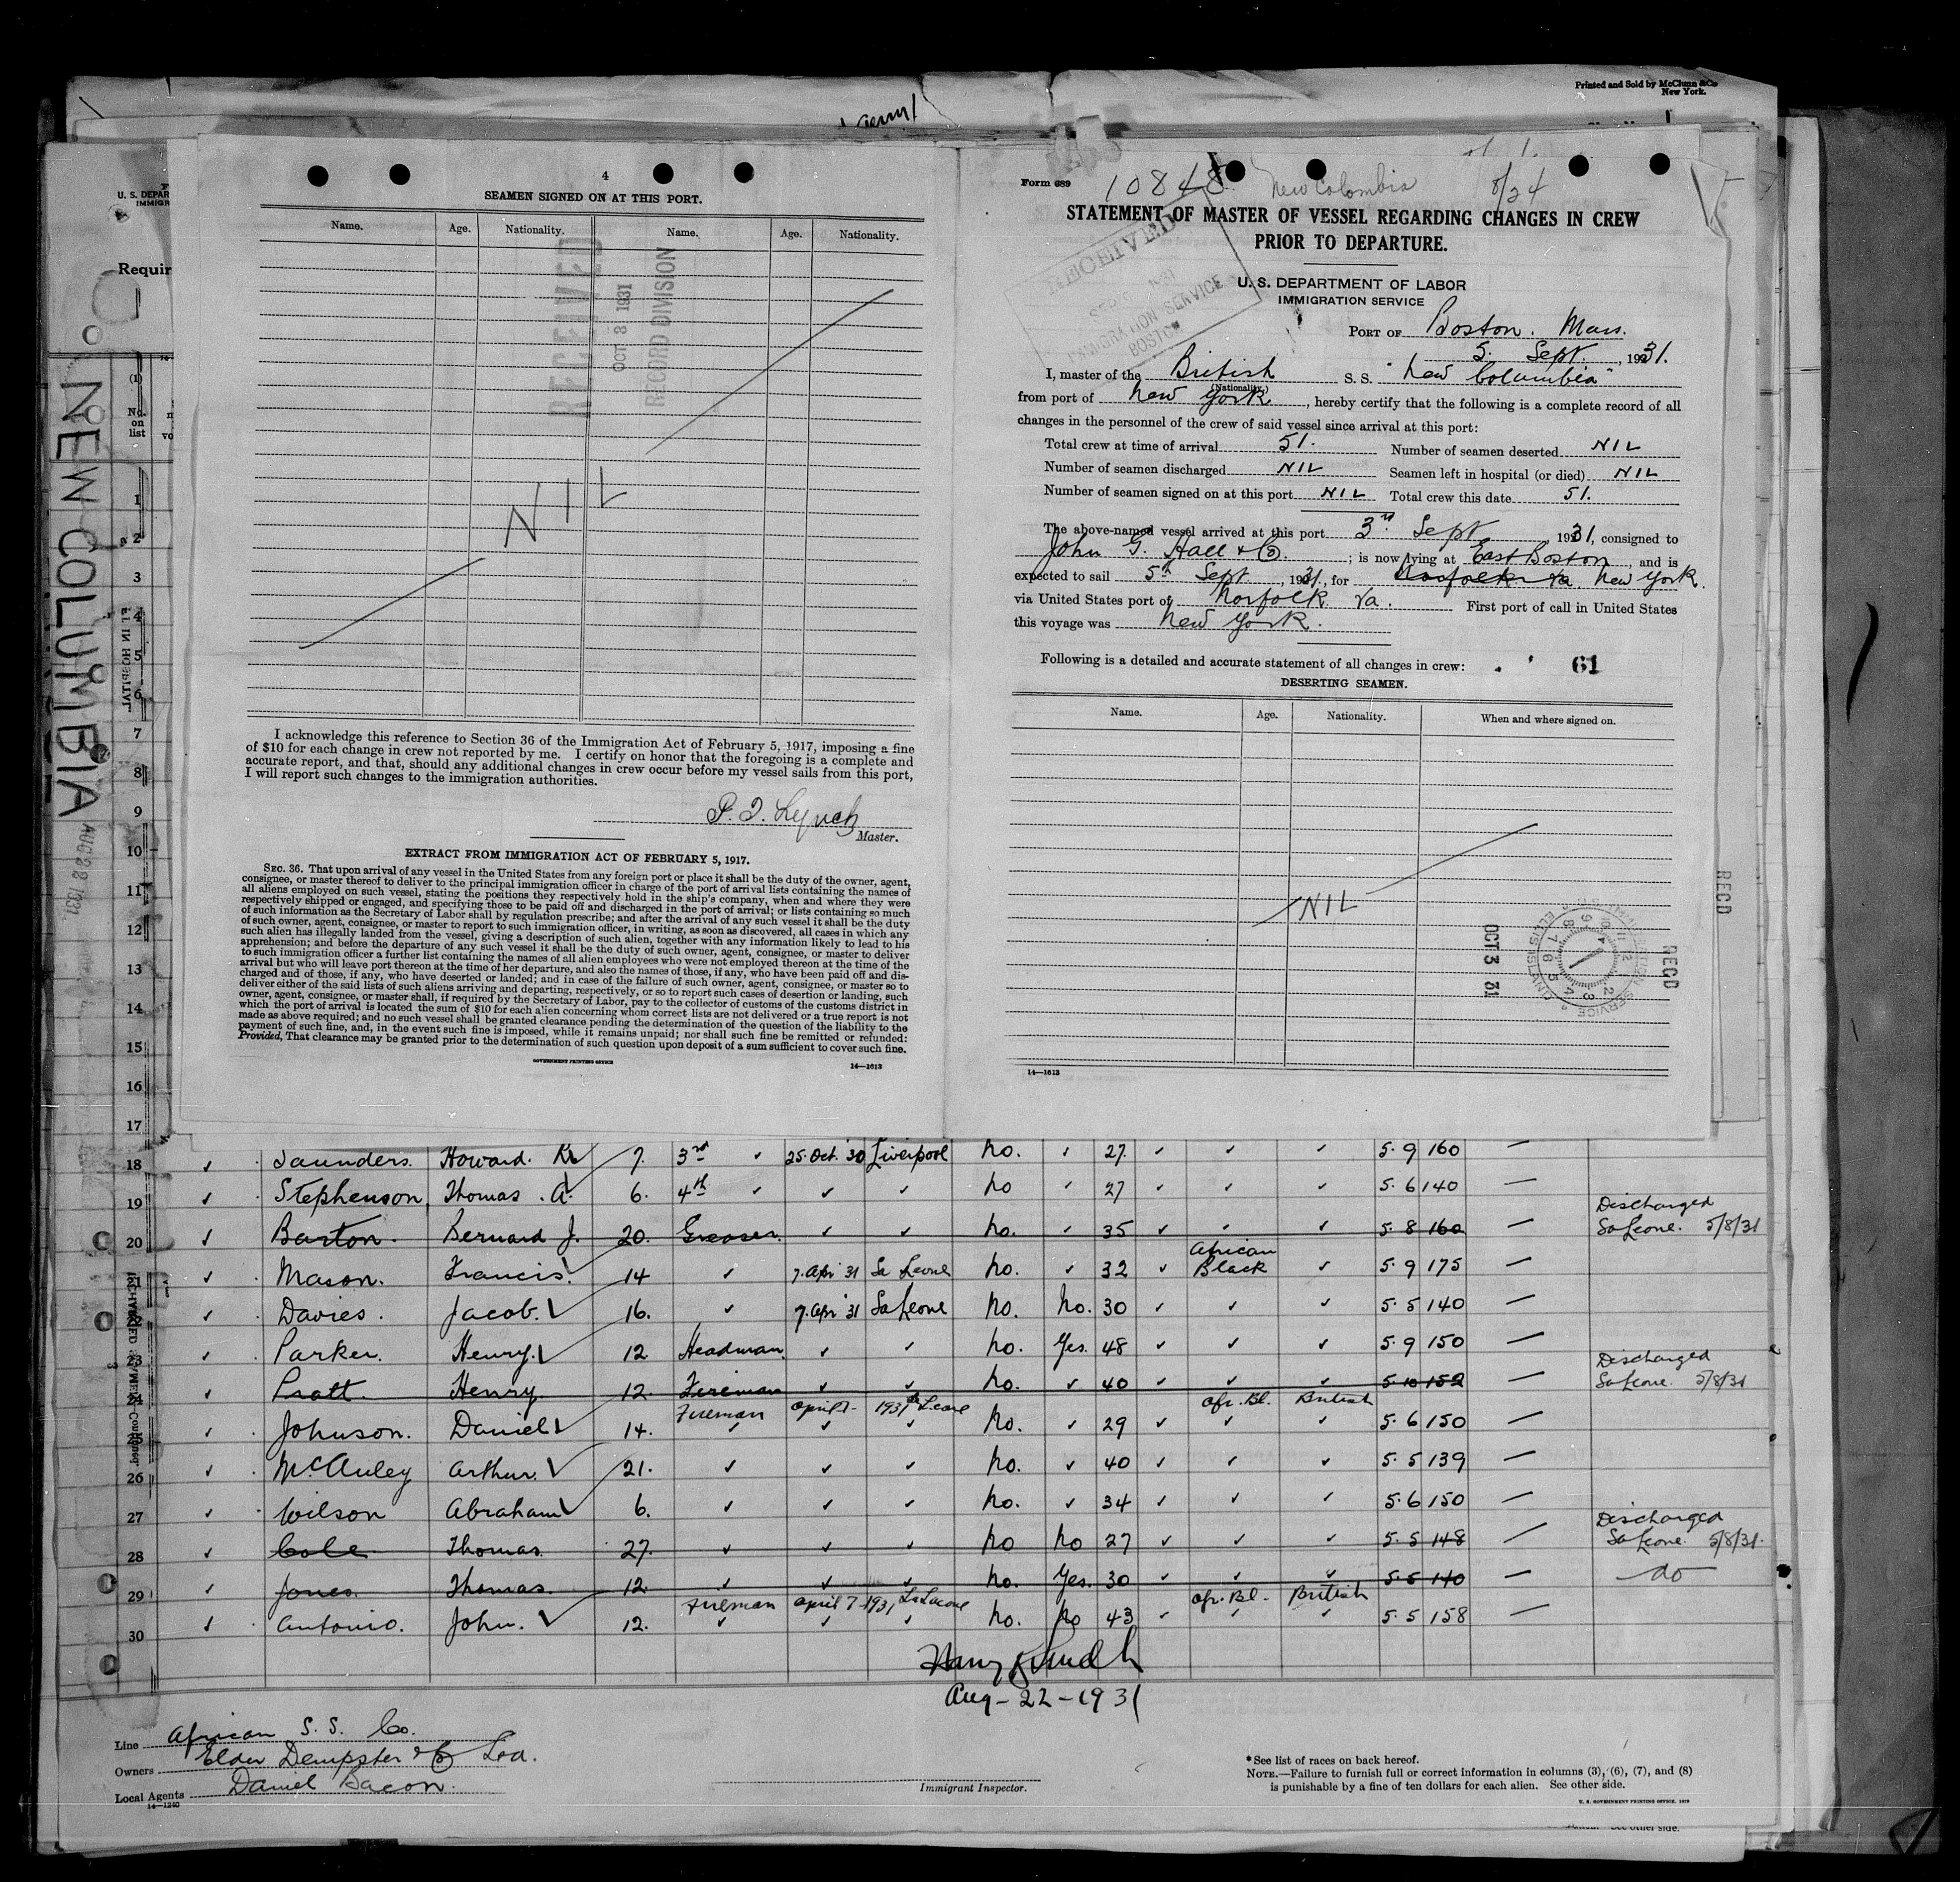 Printed and Sold by McClunn & Co
New York.
4
SEAMEN SIGNED ON AT THIS PORT.
Name. Age. Nationality. Name. Age. Nationality.
RECEIVED
OCT 8 1931
RECORD DIVISION
NIL
I acknowledge this reference to Section 36 of the Immigration Act of February 5, 1917, imposing a fine
of $10 for each change in crew not reported by me. I certify on honor that the foregoing is a complete and
accurate report, and that, should any additional changes in crew occur before my vessel sails from this port,
I will report such changes to the immigration authorities.
Lynch
Master.
EXTRACT FROM IMMIGRATION ACT OF FEBRUARY 5, 1917.
SEC. 36. That upon arrival of any vessel in the United States from any foreign port or place it shall be the duty of the owner, agent,
consignee, or master thereof to deliver to the principal immigration officer in charge of the port of arrival lists containing the names of
all aliens employed on such vessel, stating the positions they respectively hold in the ship's company, when and where they were
respectively shipped or engaged, and specifying those to be paid off and discharged in the port of arrival; or lists containing so much
of such information as the Secretary of Labor shall by regulation prescribe; and after the arrival of any such vessel it shall be the duty
of such owner, agent, consignee, or master to report to such immigration officer, in writing, as soon as discovered, all cases in which any
such alien has illegally landed from the vessel, giving a description of such alien, together with any information likely to lead to his
apprehension; and before the departure of any such vessel it shall be the duty of such owner, agent, consignee, or master to deliver
to such immigration officer a further list containing the names of all alien employees who were not employed thereon at the time of the
arrival but who will leave port thereon at the time of her departure, and also the names of those, if any, who have been paid off and dis-
charged and of those, if any, who have deserted or landed; and in case of the failure of such owner, agent, consignee, or master so to
deliver either of the said lists of such aliens arriving and departing, respectively, or so to report such cases of desertion or landing, such
owner, agent, consignee, or master shall, if required by the Secretary of Labor, pay to the collector of customs of the customs district in
which the port of arrival is located the sum of $10 for each alien concerning whom correct lists are not delivered or a true report is not
made as above required; and no such vessel shall be granted clearance pending the determination of the question of the liability to the
payment of such fine, and, in the event such fine is imposed, while it remains unpaid; nor shall such fine be remitted or refunded:
Provided, That clearance may be granted prior to the determination of such question upon deposit of a sum sufficient to cover such fine.
GOVERNMENT PRINTING OFFICE
14—1613
Form 689 10848 New Colombia 8/24
STATEMENT OF MASTER OF VESSEL REGARDING CHANGES IN CREW
PRIOR TO DEPARTURE.
U. S. DEPARTMENT OF LABOR
IMMIGRATION SERVICE
IMMIGRATION SERVICE
BOSTON
PORT OF Boston. Mass.
5. Sept, 1931.
I, master of the British S. S. "New Columbia"
(Nationality.)
from port of New York, hereby certify that the following is a complete record of all
changes in the personnel of the crew of said vessel since arrival at this port:
Total crew at time of arrival 51. Number of seamen deserted NIL
Number of seamen discharged NIL Seamen left in hospital (or died) NIL
Number of seamen signed on at this port NIL Total crew this date 51.
The above-named vessel arrived at this port 3rd Sept, 1931, consigned to
John G. Hall & Co. ; is now lying at East Boston, and is
expected to sail 5th Sept, 1931, for Norfolk Va New York.
via United States port of Norfolk Va. First port of call in United States
this voyage was New York.
Following is a detailed and accurate statement of all changes in crew: 61
DESERTING SEAMEN.
Name. Age. Nationality. When and where signed on.
NIL
RECD
OCT 3 31
RECD
14—1613
U. S. DEPAR
IMMIGR
Requir
NEW COLUMBIA
AUG 22 1931
(1)
No. on list
1
2
3
4
5
6
7
8
9
10
11
12
13
14
15
16
17
18 Saunders. Howard. R. 7. 3rd 25. Oct. 30 Liverpool No. 27. 5. 9 160
19 Stephenson, Thomas. A. 6. 4th No 27 5. 6 140
20 Barton. Bernard J. 20. Greaser. No. 35 5. 8 160 Discharged Sa Leone. 5/8/31
21 Mason. Francis. 14 7. Apr 31 Sa Leone No. 32 African Black 5. 9 175
22 Davies. Jacob. 16. 7. Apr 31 Sa Leone No. No. 30 5. 5 140
23 Parker. Henry. 12 Headman. No. Yes. 48 5. 9 150
24 Pratt. Henry 12. Fireman No. 40 5 10 152 Discharged Sa Leone. 5/8/31
25 Johnson. Daniel 14. Fireman April 7- 1931 Sa Leone No. 29 Afr. Bl. British 5. 6 150
26 McAuley Arthur. 21. No. 40 5. 5 139
27 Wilson Abraham 6. No. 34 5. 6 150
28 Cole Thomas. 27. No No 27 5. 5 148 Discharged Sa Leone. 5/8/31.
29 Jones. Thomas. 12. No. Yes. 30 5. 5 140 do
30 Antonio. John. 12. Fireman April 7-1931 Sa Leone No. No 43 Afr. Bl. British 5. 5 158
Aug-22-1931
Line African S. S. Co.
Owners Elder Dempster & Co Ltd.
Local Agents Daniel Bacon.
14—1240
Immigrant Inspector.
*See list of races on back hereof.
NOTE.—Failure to furnish full or correct information in columns (3), (6), (7), and (8)
is punishable by a fine of ten dollars for each alien. See other side.
U. S. GOVERNMENT PRINTING OFFICE